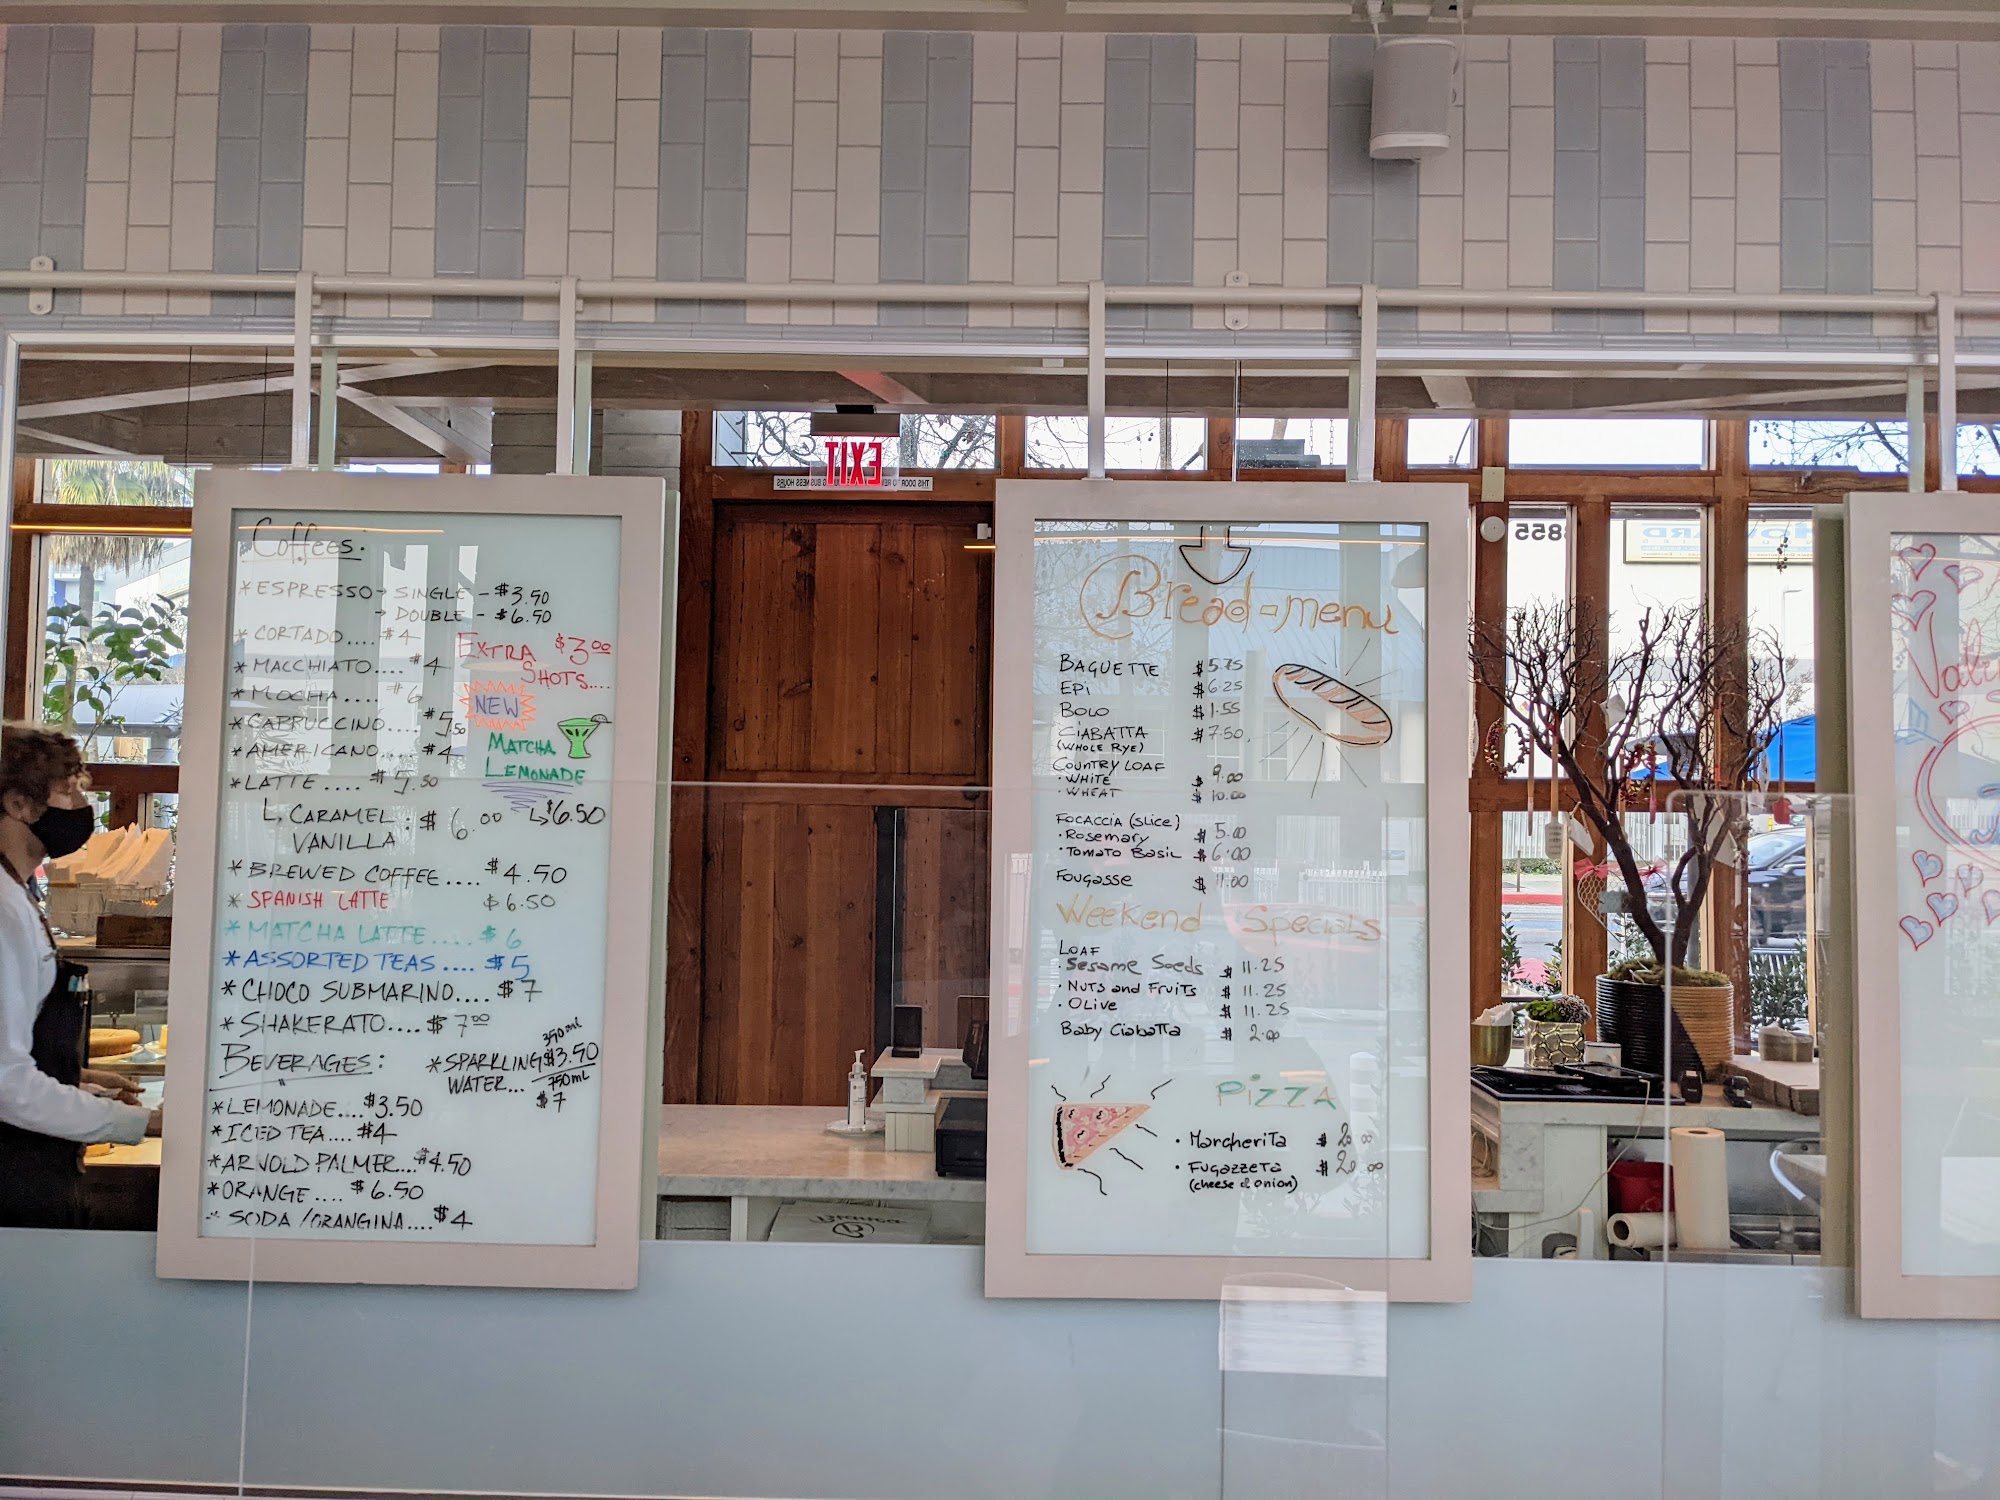 EXIT
8855
Coffees:
* ESPRESSO → SINGLE - $3.50
→ DOUBLE - $6.50
* CORTADO.... $4
* MACCHIATO.... $4
* MOCHA.... $6
* CAPPUCCINO.... $5.50
* AMERICANO.... $4
* LATTE .... $5.50
L, CARAMEL : $6.00
VANILLA
EXTRA $3.00
SHOTS....
NEW
MATCHA
LEMONADE
↳ $6.50
* BREWED COFFEE.... $4.50
* SPANISH LATTE $6.50
* MATCHA LATTE.... $6
* ASSORTED TEAS .... $5
* CHOCO SUBMARINO.... $7
* SHAKERATO.... $7.00
BEVERAGES:
* SPARKLING 350mL $3.50
WATER... 750mL
$7
* LEMONADE.... $3.50
* ICED TEA.... $4
* ARNOLD PALMER... $4.50
* ORANGE .... $6.50
* SODA / ORANGINA.... $4
Bread-menu
BAGUETTE $5.75
EPi $6.25
BOLO $1.55
CiABATTA $7.50
(WHOLE RYE)
COUNTRY LOAF
· WHITE $9.00
· WHEAT $10.00
FOCACCIA (SLICE)
· Rosemary $5.00
· Tomato Basil $6.00
Fougasse $11.00
Weekend Specials
LOAF
· Sesame Seeds $11.25
· NUTS and FRUITS $11.25
· OLive $11.25
Baby Ciabatta $2.00
PiZZA
· MargheriTa $20.00
· FUGAZZETA $20.00
(cheese & onion)
Bianca